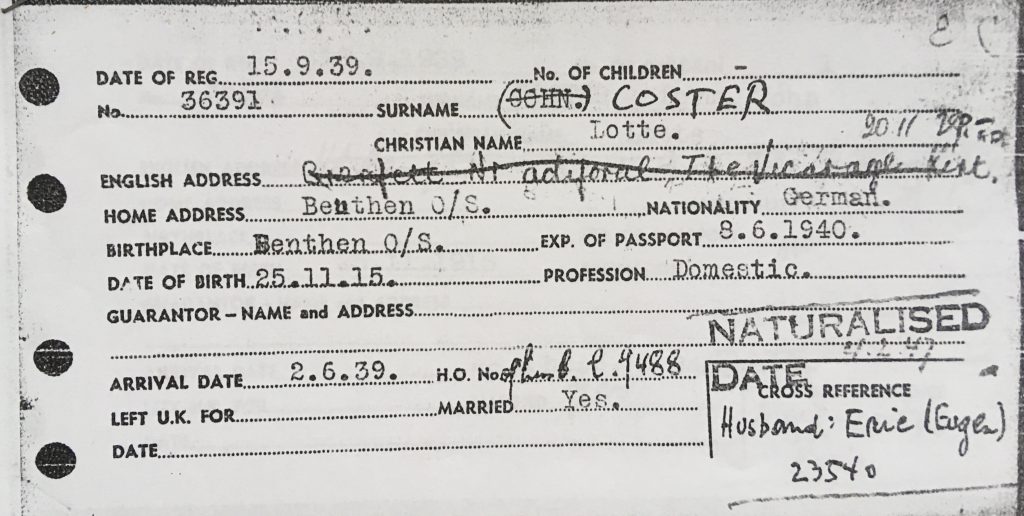 DATE OF REG. 15.9.39. No. OF CHILDREN -
No. 36391 SURNAME (COHN.) COSTER
CHRISTIAN NAME Lotte. 20 11
ENGLISH ADDRESS The Vicarage Kent.
HOME ADDRESS Beuthen O/S. NATIONALITY German.
BIRTHPLACE Benthen O/S. EXP. OF PASSPORT 8.6.1940.
DATE OF BIRTH 25.11.15. PROFESSION Domestic.
GUARANTOR – NAME and ADDRESS
NATURALISED
ARRIVAL DATE 2.6.39. H.O. No. C.9488
DATE
CROSS REFERENCE
LEFT U.K. FOR MARRIED Yes.
Husband: Eric (Eugen)
DATE
23540